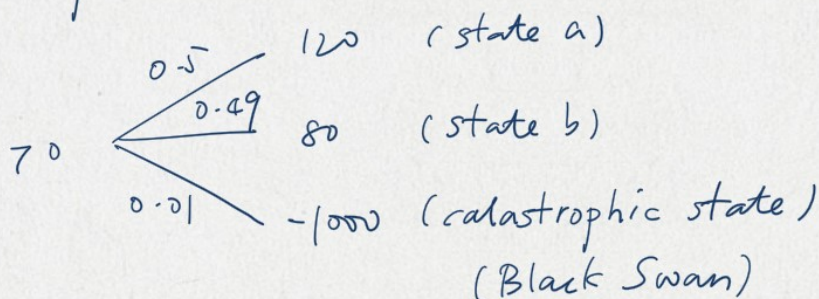 0.5 120 (state a)
0.49 80 (state b)
70
0.01 -1000 (catastrophic state)
(Black Swan)